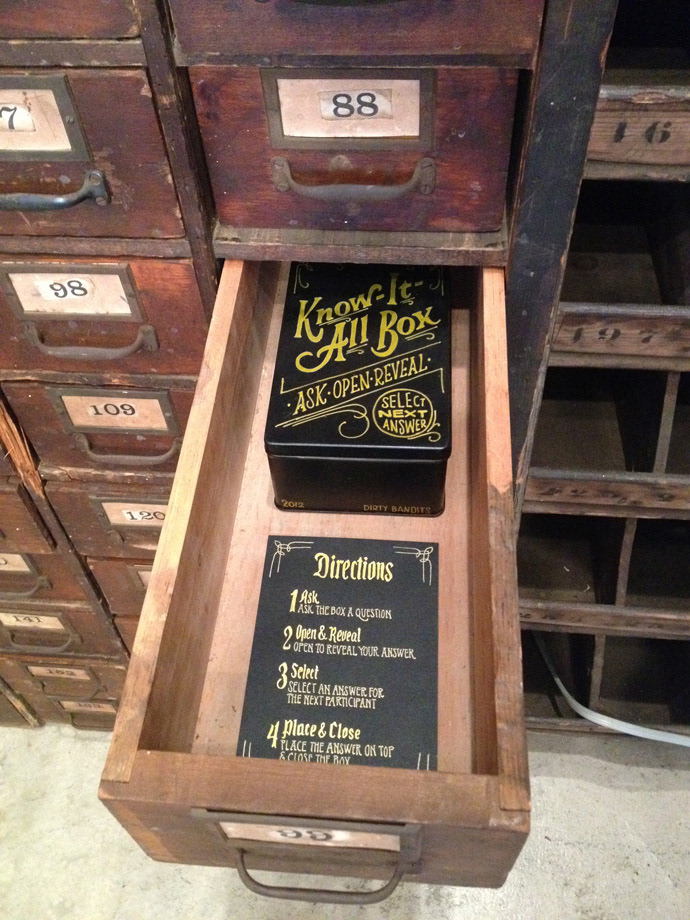 7
88
16
98
197
109
120
141
Know-It-
All Box
·ASK·OPEN·REVEAL·
SELECT
NEXT
ANSWER
2012
DIRTY BANDITS
Directions
1 Ask
ASK THE BOX A QUESTION
2 Open & Reveal
OPEN TO REVEAL YOUR ANSWER
3 Select
SELECT AN ANSWER FOR
THE NEXT PARTICIPANT
4 Place & Close
PLACE THE ANSWER ON TOP
& CLOSE THE BOX
99